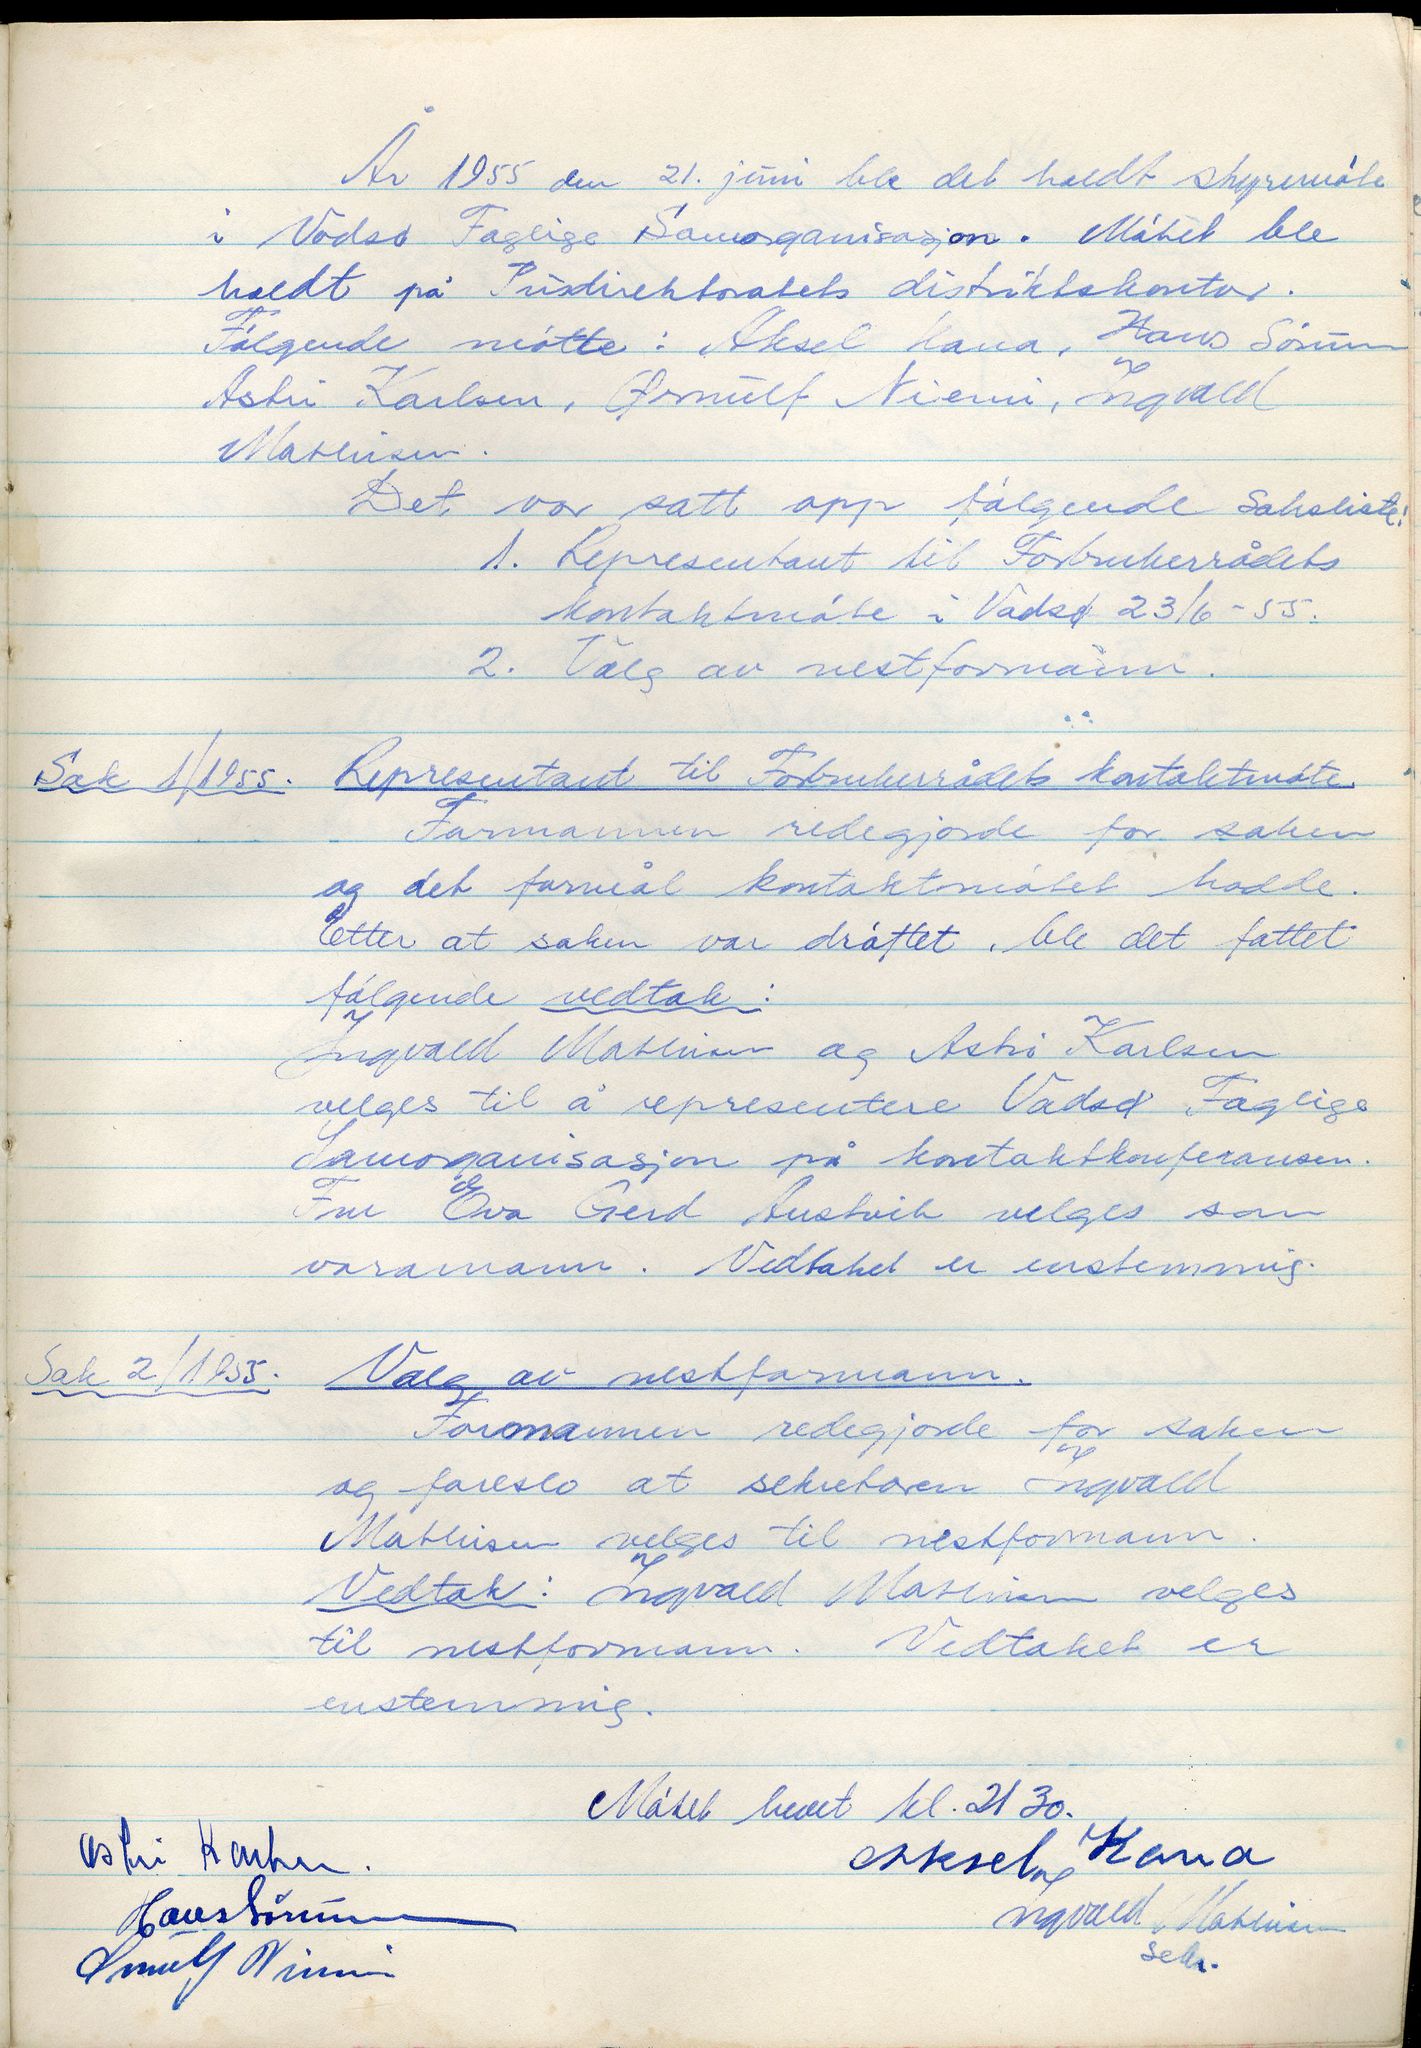 År 1955 den 21. juni ble det holdt styremøte
i Vadsø Faglige Samorganisasjon. Møtet ble
holdt på Prisdirektoratets distriktskontor.
Følgende møtte: Aksel Kana, Hans Sörum
Astri Karlsen, Ørnulf Niemi, Ingvald
Mathisen.
Det var satt opp følgende saksliste:
1. Representant til Forbrukerrådets
kontaktmøte i Vadsø 23/6-55.
2. Valg av nestformann.
Sak 1/1955. Representant til Forbrukerrådets kontaktmøte.
Formannen redegjorde for saken
og det formål kontaktmøtet hadde.
Etter at saken var drøftet, ble det fattet
følgende vedtak:
Ingvald Mathisen og Astri Karlsen
velges til å representere Vadsø Faglige
Samorganisasjon på kontaktkonferansen.
Fru Eva Gerd Austvik velges som
varamann. Vedtaket er enstemmig.
Sak 2/1955. Valg av nestformann.
Formannen redegjorde for saken
og foreslo at sekretæren Ingvald
Mathisen velges til nestformann.
Vedtak: Ingvald Mathisen velges
til nestformann. Vedtaket er
enstemmig.
Møtet hevet kl. 21 30.
Astri Karlsen. Aksel Kana
Hans Sörum Ingvald Mathisen
Ørnulf Niemi sekr.